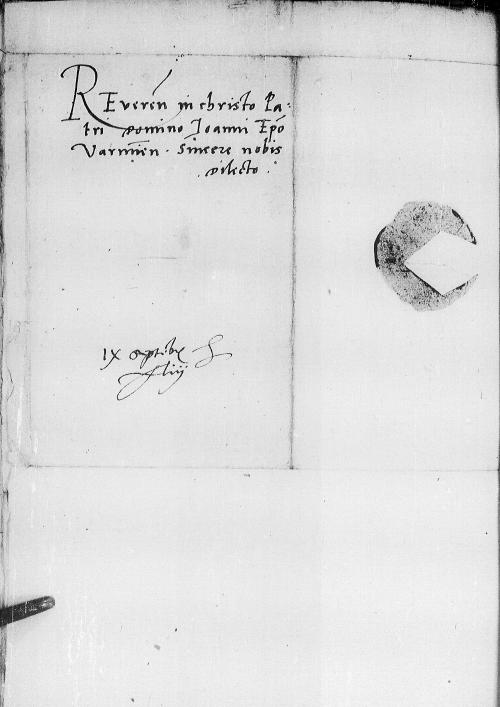 REveren in christo Pa-
tri domino Joanni Epo
Varmien. Sincere nobis
dilecto.
IX Septibr